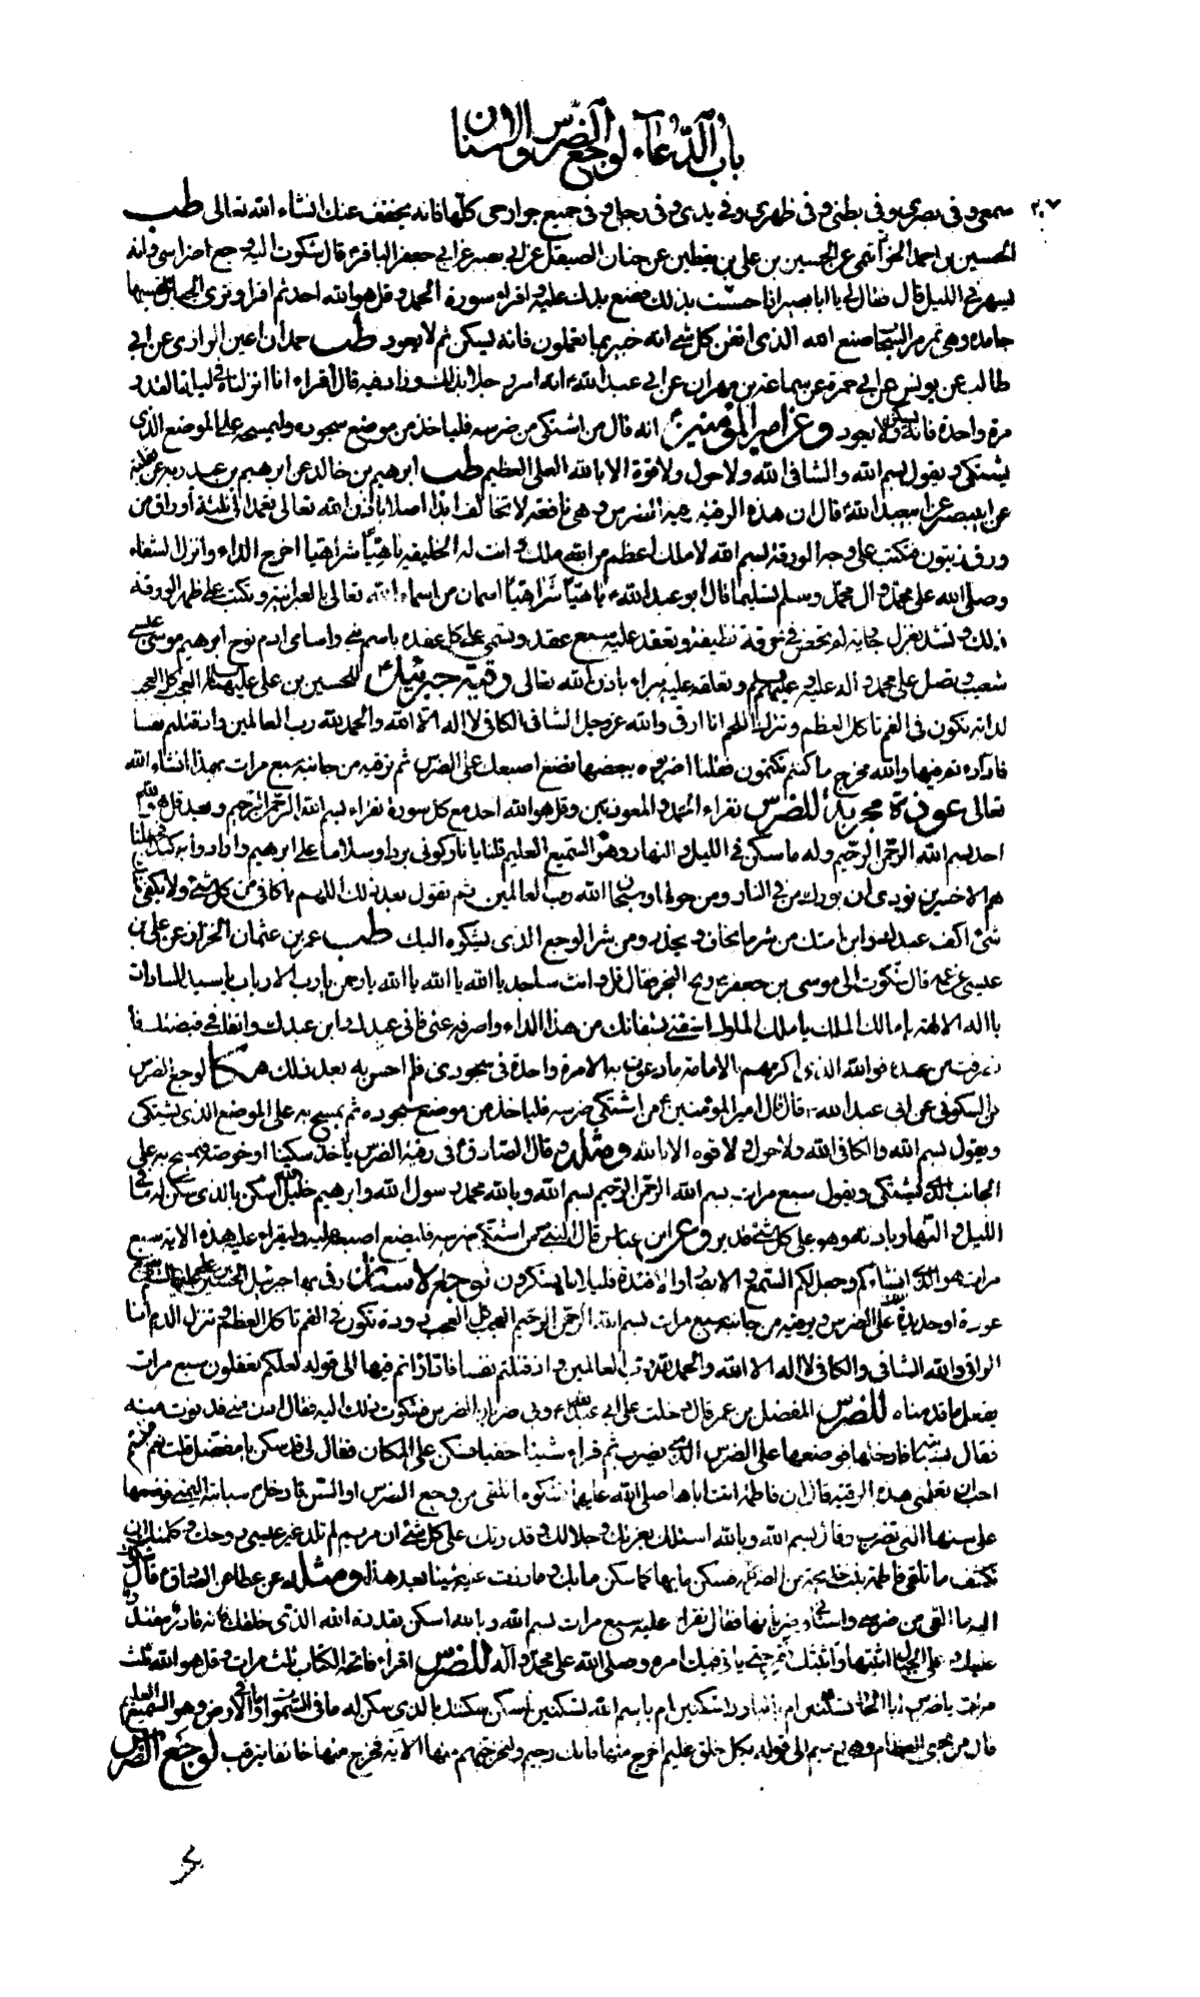 باب الدعاء لوجع الضرس والاسنان
٢٠٧
سمعى وفى بصرى وفى بطنى وفى ظهرى وفى يدى وفى رجلى وفى جميع جوارحى كلها فانه يخفف عنك انشاء الله تعالى طب
الحسين بن احمد الخواتيمى عن الحسين بن على بن يقطين عن حنان الصيقل عن ابى بصير عن ابى جعفر الباقر ع قال شكوت اليه وجع اضراسى وانه
يسهرنى الليل قال فقال لى يا ابا بصير اذا احسست بذلك فضع يدك عليه واقراء سورة الحمد وقل هو الله احد ثم اقراء وترى الجبال تحسبها
جامدة وهى تمر مر السحاب صنع الله الذى اتقن كل شئ انه خبير بما تفعلون فانه يسكن ثم لا يعود طب حمدان اعين الرازى عن ابى
طالب عن يونس عن ابى حمزة عن سماعة بن مهران عن ابى عبد الله ع انه امر رجلا بذلك وزاد فيه قال اقراء انا انزلناه فى ليلة القدر
مرة واحدة فانه يسكن ولا يعود وعن امير المؤمنين ع انه قال من اشتكى من ضرسه فلياخذ من موضع سجوده وليمسحه على الموضع الذى
يشتكى ويقول بسم الله والشافى الله ولا حول ولا قوة الا بالله العلى العظيم طب ابرهيم بن خالد عن ابرهيم بن عبد ربه عن ثعلبة
عن ابى بصير عن ابى عبد الله ع قال ان هذه الرقية رقية الضرس وهى نافعة لا تخالف ابدا اصلا باذن الله تعالى تعمد الى ثلثة أوراق من
ورق زيتون فتكتب على وجه الورقة بسم الله لا ملك اعظم من الله ملك وانت له الخليفة ياهيّا شراهيّا اخرج الداء وانزل الشفاء
وصلى الله على محمد وال محمد وسلم تسليما قال ابو عبد الله ع ياهيّا شراهيّا اسمان من اسماء الله تعالى بالعبرانية وتكتب على ظهر الورقة
ذلك وتشد بغزل جارية لم تحض فى خرقة نظيفة وتعقد عليه سبع عقد وتسمى على كل عقدة باسم نبى واسامى ادم نوح ابرهيم موسى عيسى
شعيب وتصل على محمد واله عليه وعليهم وتعلقه عليه يبراء باذن الله تعالى رقية جبرئيل ع للحسين بن على عليهما السلام العجب كل العجب
لدابة تكون فى الفم تاكل العظم وتنزل اللحم انا ارقى والله عز وجل الشافى الكافى لا اله الا الله والحمد لله رب العالمين واذ قتلتم نفسا
فادارءتم فيها والله مخرج ما كنتم تكتمون فقلنا اضربوه ببعضها تضع اصبعك على الضرس ثم ترقيه من جانبه سبع مرات بهذا انشاء الله
تعالى عوذة مجربة للضرس تقراء الحمد والمعوذتين وقل هو الله احد مع كل سورة تقراء بسم الله الرحمن الرحيم وبعد قل هو الله
احد بسم الله الرحمن الرحيم وله ما سكن فى الليل والنهار وهو السميع العليم قلنا يا نار كونى بردا وسلاما على ابرهيم وارادوا به كيدا فجعلنا
هم الاخسرين نودى ان بورك من فى النار ومن حولها وسبحان الله رب العالمين ثم تقول بعد ذلك اللهم يا كافى من كل شئ ولا يكفى منك
شئ اكف عبدك وابن امتك من شر ما يخاف ويحذر ومن شر الوجع الذى يشكوه اليك طب عمر بن عثمان الخزاز عن على بن
عيسى عن عمه قال شكوت الى موسى بن جعفر ع ريح البخر فقال قل وانت ساجد يا الله يا الله يا الله يا رحمن يا رب الارباب يا سيد السادات
يا اله الالهة يا مالك الملك يا ملك الملوك اشفنى بشفائك من هذا الداء واصرفه عنى فانى عبدك وابن عبدك واتقلب فى قبضتك فا
نصرفت من عنده فو الله الذى اكرمهم بالامامة ما دعوت به الا مرة واحدة فى سجودى فلم احس به بعد ذلك مكا لوجع الضرس
عن السكونى عن ابى عبد الله ع قال قال امير المؤمنين ع من اشتكى ضرسه فلياخذ من موضع سجوده ثم يمسح به على الموضع الذى يشتكى
ويقول بسم الله والكافى الله ولا حول ولا قوة الا بالله ومثله وقال الصادق ع فى رقية الضرس ياخذ سكينا او خوصة فيمسح به على
الجانب الذى يشتكى ويقول سبع مرات بسم الله الرحمن الرحيم بسم الله وبالله محمد رسول الله وابرهيم خليل الله اسكن بالذى سكن له ما فى
الليل والنهار باذنه وهو على كل شئ قدير وعن ابن عباس قال النبى ص من اشتكى ضرسه فليضع اصبعه عليه وليقراء عليه هذه الاية سبع
مرات هو الذى انشاءكم وجعل لكم السمع والابصار والافئدة قليلا ما تشكرون لوجع الاسنان رقى بها جبرئيل الحسين بن على عليهما السلم يضع
عودة او حديدة على الضرس ويرقيه من جانبه سبع مرات بسم الله الرحمن الرحيم العجب كل العجب دودة تكون فى الفم تاكل العظم وتنزل الدم انا
الراقى والله الشافى والكافى لا اله الا الله والحمد لله رب العالمين واذ قتلتم نفسا فاداراتم فيها الى قوله لعلكم تعقلون سبع مرات
يفعل ما قدمناه للضرس المفضل بن عمر قال دخلت على ابى عبد الله ع وبى ضربان الضرس فشكوت ذلك اليه فقال ادن منى فدنوت منه
فقال بسبابته فادخلها فوضعها على الضرس الذى يضرب ثم قراء شيئا خفيا فسكن على المكان فقال لى قد سكن يا مفضل قلت نعم فتبسم
احب ان تعلمنى هذه الرقية قال ان فاطمة اتت اباها صلى الله عليهما تشكوه ما تلقى من وجع الضرس او السن فادخل ص سبابته اليمنى فوضعها
على سنها التى تضرب وقال بسم الله وبالله اسئلك بعزتك وجلالك وقدرتك على كل شئ ان مريم لم تلد غير عيسى روحك وكلمتك ان
تكشف ما تلقى فاطمة بنت خديجة من الضر كله فسكن ما بها كما سكن ما بك وما زدت عليه شيئا بعد هذا ومثله عن عطا عن الصادق ع قال شكوت
اليه ما القى من ضرسى واسنانى وضربانها فقال تقراء عليه سبع مرات بسم الله وبالله اسكن بقدرة الله الذى خلقك فانه قادر مقتدر
عليك وعلى الجبال اثبتها واثبتك فقرى حتى ياتى فيك امره وصلى الله على محمد واله للضرس اقراء فاتحة الكتاب ثلث مرات وقل هو الله ثلث
مرات يا ضرس ابالحار تسكنين ام بالبارد تسكنين ام باسم الله تسكنين اسكن سكنتك بالذى سكن له ما فى السموات وما فى الارض وهو السميع العليم
قال من يحيى العظام وهى رميم الى قوله بكل خلق عليم اخرج منها فانك رجيم ولنخرجنهم منها الاية فخرج منها خائفا يترقب لوجع الضرس